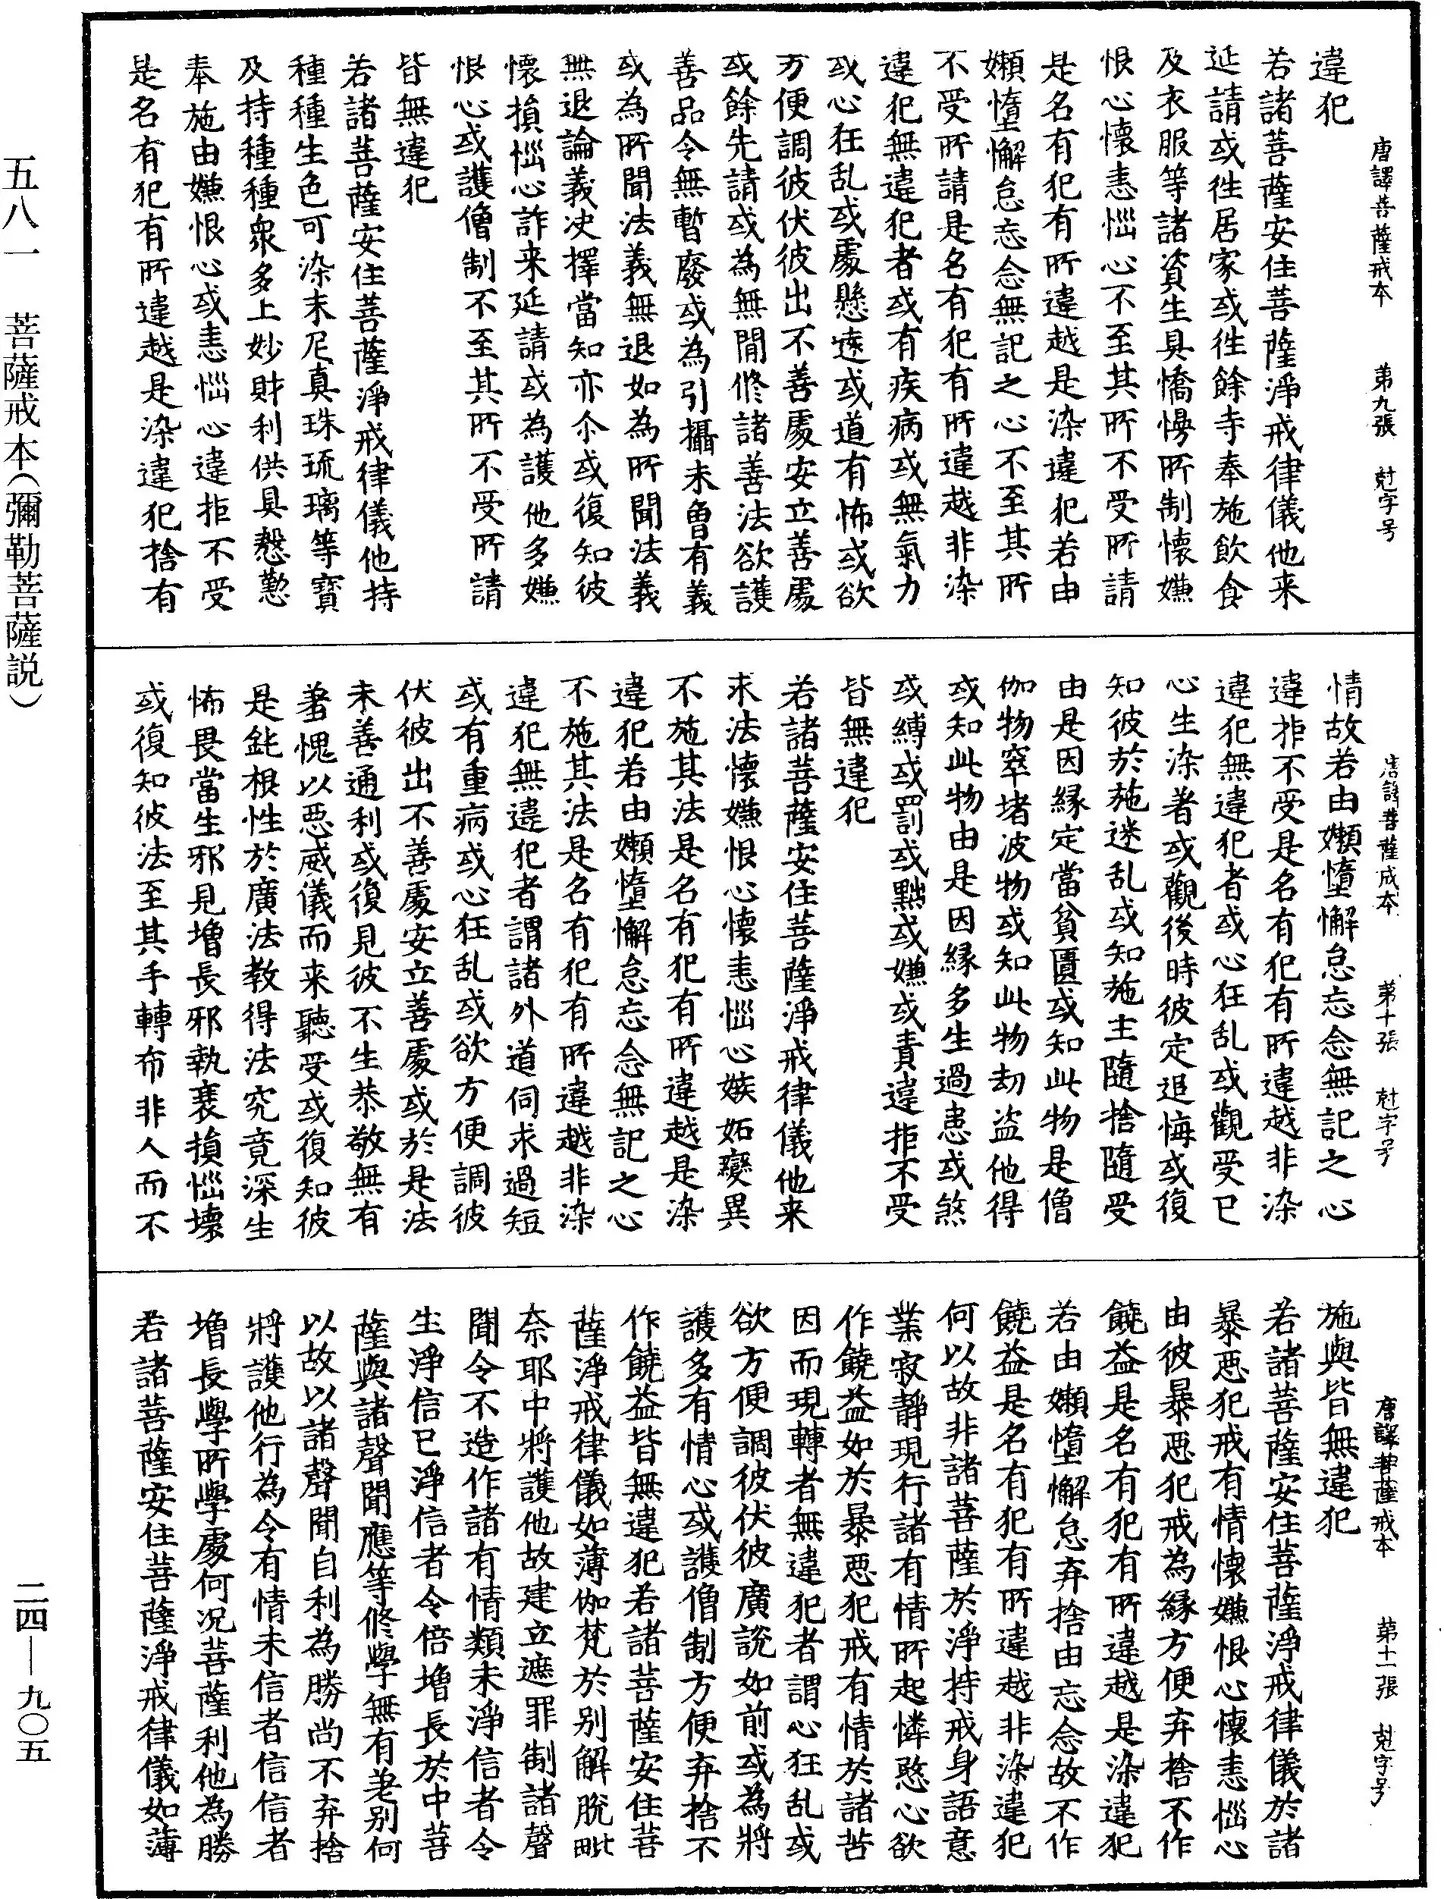 違犯
若諸菩薩安住菩薩淨戒律儀他来
延請或徃居家或徃餘寺奉施飲食
及衣服等諸資生具憍慢所制懷嫌
恨心懷恚惱心不至其所不受所請
是名有犯有所違越是染違犯若由
嬾惰懈怠忘念無記之心不至其所
不受所請是名有犯有所違越非染
違犯無違犯者或有疾病或無氣力
或心狂乱或處懸遠或道有怖或欲
方便調彼伏彼出不善處安立善處
或餘先請或為無閒修諸善法欲護
善品令無暫廢或為引攝未曾有義
或為所聞法義無退如為所聞法義
無退論義决擇當知亦尒或復知彼
懷損惱心詐来延請或為護他多嫌
恨心或護僧制不至其所不受所請
皆無違犯
若諸菩薩安住菩薩淨戒律儀他持
種種生色可染末尼真珠琉璃等寶
及持種種衆多上妙財利供具慇懃
奉施由嫌恨心或恚惱心違拒不受
是名有犯有所違越是染違犯捨有
唐譯菩薩戒本　第九張　尅字号
情故若由嬾惰懈怠忘念無記之心
違拒不受是名有犯有所違越非染
違犯無違犯者或心狂乱或觀受已
心生染著或觀後時彼定追悔或復
知彼於施迷乱或知施主隨捨隨受
由是因緣定當貧匱或知此物是僧
伽物窣堵波物或知此物劫盗他得
或知此物由是因緣多生過患或煞
或縛或罰或黜或嫌或責違拒不受
皆無違犯
若諸菩薩安住菩薩淨戒律儀他来
求法懷嫌恨心懷恚惱心嫉妬變異
不施其法是名有犯有所違越是染
違犯若由嬾惰懈怠忘念無記之心
不施其法是名有犯有所違越非染
違犯無違犯者謂諸外道伺求過短
或有重病或心狂乱或欲方便調彼
伏彼出不善處安立善處或於是法
未善通利或復見彼不生恭敬無有
羞愧以惡威儀而来聽受或復知彼
是鈍根性於廣法教得法究竟深生
怖畏當生邪見增長邪執衰損惱壞
或復知彼法至其手轉布非人而不
唐譯菩薩戒本　第十張　尅字号
施與皆無違犯
若諸菩薩安住菩薩淨戒律儀於諸
暴惡犯戒有情懷嫌恨心懷恚惱心
由彼暴惡犯戒為緣方便弃捨不作
饒益是名有犯有所違越是染違犯
若由嬾惰懈怠弃捨由忘念故不作
饒益是名有犯有所違越非染違犯
何以故非諸菩薩於淨持戒身語意
業寂靜現行諸有情所起憐愍心欲
作饒益如於暴惡犯戒有情於諸苦
因而現轉者無違犯者謂心狂乱或
欲方便調彼伏彼廣說如前或為將
護多有情心或護僧制方便弃捨不
作饒益皆無違犯若諸菩薩安住菩
薩淨戒律儀如薄伽梵於別解脫毗
奈耶中將護他故建立遮罪制諸聲
聞令不造作諸有情類未淨信者令
生淨信已淨信者令倍增長於中菩
薩與諸聲聞應等修學無有差別何
以故以諸聲聞自利為勝尚不弃捨
將護他行為令有情未信者信信者
增長學所學處何況菩薩利他為勝
若諸菩薩安住菩薩淨戒律儀如薄
唐譯菩薩戒本　第十一張　尅字号
五八一　菩薩戒本（彌勒菩薩説）
二四—九〇五